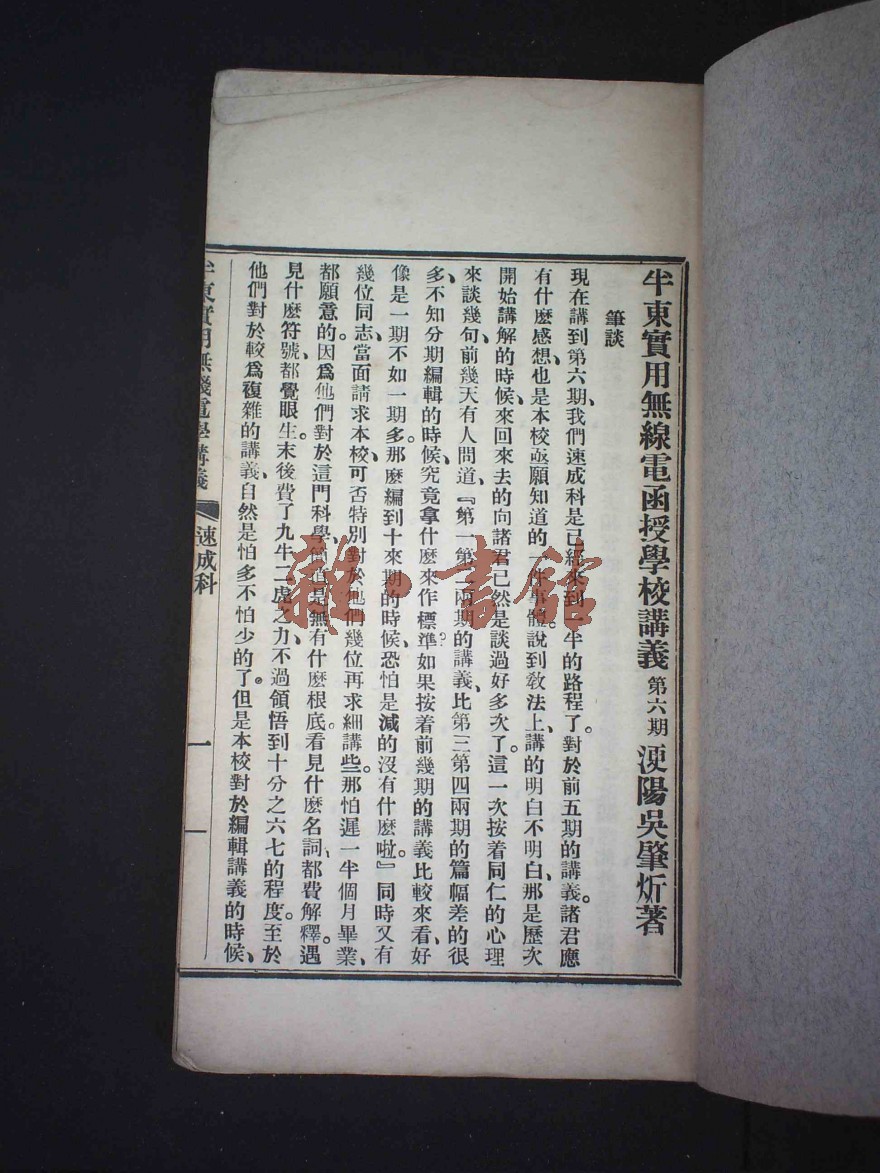 半東實用無線電函授學校講義 第六期 浭陽吳肇炘著
筆談
現在講到第六期、我們速成科是已經來到一半的路程了。對於前五期的講義。諸君應
有什麼感想、也是本校亟願知道的一件事體。說到教法上、講的明白不明白、那是歷次
開始講解的時候、來回來去的向諸君已然是談過好多次了。這一次按着同仁的心理
來談幾句、前幾天有人問道、『第一第二兩期的講義、比第三第四兩期的篇幅差的很
多、不知分期編輯的時候、究竟拿什麼來作標準。如果按着前幾期的講義比較來看、好
像是一期不如一期多。那麼編到十來期的時候、恐怕是減的沒有什麼啦。』同時又有
幾位同志、當面請求本校、可否特別對於他們幾位再求細講些。那怕遲一半個月畢業、
都願意的。因爲他們對於這門科學、簡直是無有什麼根底。看見什麼名詞、都費解釋。遇
見什麼符號、都覺眼生。末後費了九牛二虎之力、不過領悟到十分之六七的程度。至於
他們對於較爲複雜的講義、自然是怕多不怕少的了。但是本校對於編輯講義的時候、
半東實用無綫電學講義 速成科 一
雜·書館